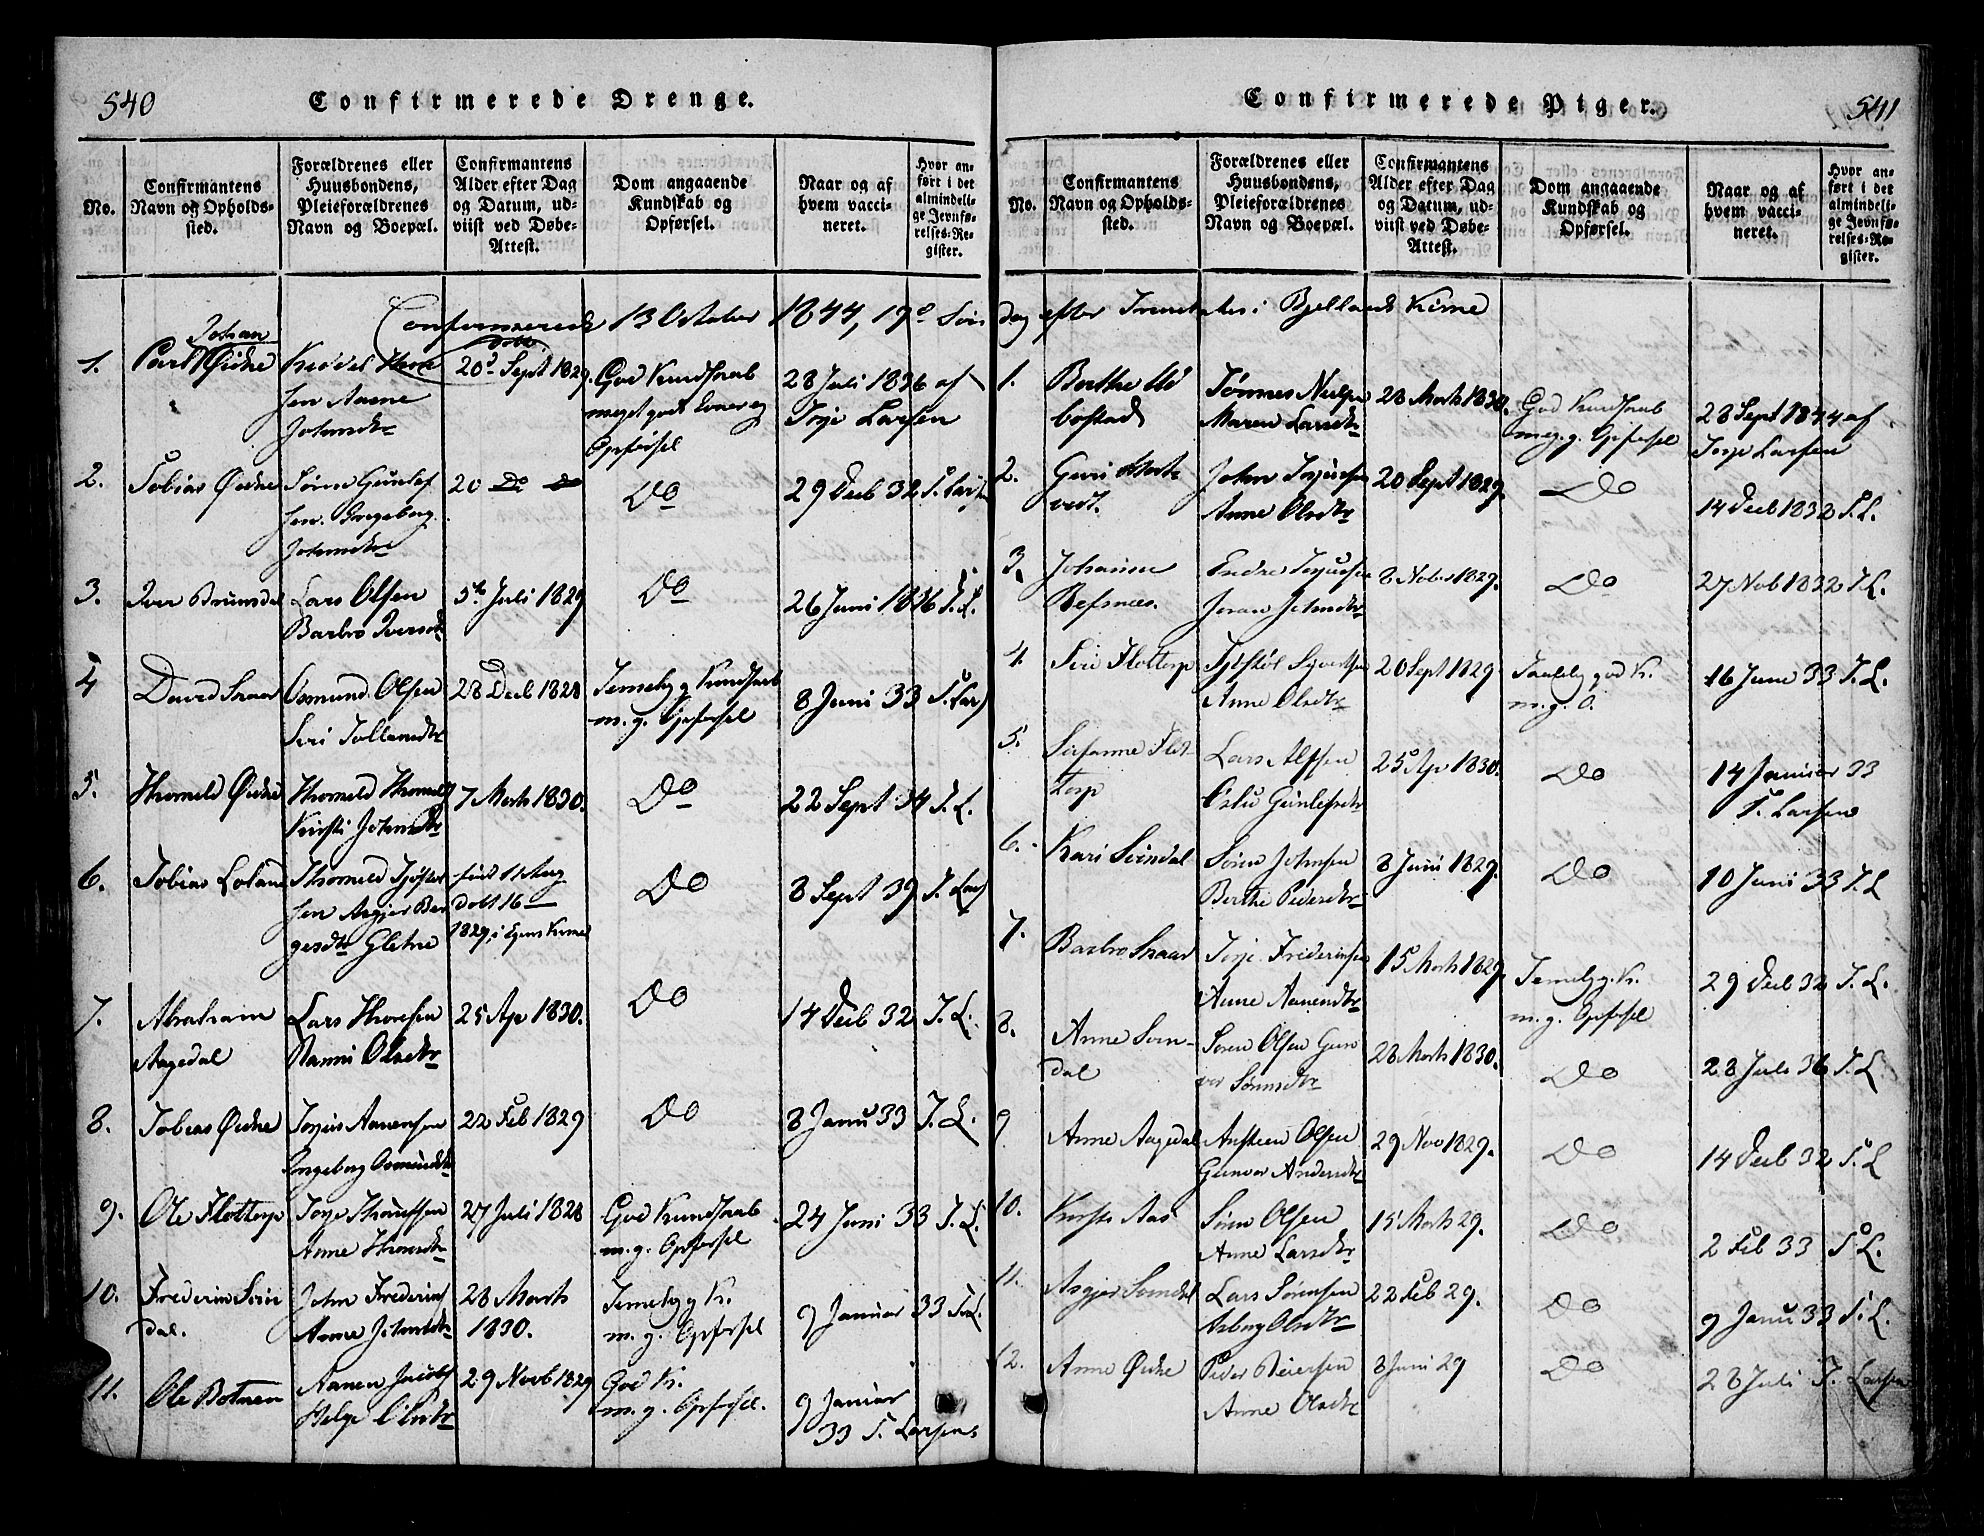 540
Confirmerede Drenge.
No.
Confirmantens Navn og Opholdssted.
Forældrenes eller Huusbondens, Pleieforældrenes Navn og Boepæl.
Confirmantens Alder efter Dag og Datum, udviist ved Døbe-Attest.
Dom angaaende Kundskab og Opførsel.
Naar og af hvem vaccineret.
Hvor anført i det almindelige Jevnførelses-Register.
Confirmerede 13 October 1844, 19de Søn
1. Carl Johan Øidne
Kieddel
sen Aanne
Johnsdtr
20d Sept 1829.
God Kundskab
meget gode Evner og
Opførsel
28 Juli 1836 af
Torje Larsen
2. Tobias Øidne
Sørne Gunlef
sen. Ingeborg
Johnsdtr
20 Do do
Do
29 Decb 32 T. Larsen
3. Iver Brunsdal
Lars Olsen
Barbro Iversdtr
5te Juli 1829
Do
26 Juni 1836 T. L.
4 David Skaar
Osmund Olsen
Siri Tollevsdtr
28 Decb 1828
Temelig g Kundskab
m. g. Opførsel
8 Juni 33 T. Lars
5. Thomeld Øidne
Thomeld Thomelds
Kirsti Johnsdtr
7 Marts 1830.
Do
22 Sept 34 T. L.
6. Tobias Loland
Thomeld Tjøstel
sen Asgjer Bør
gesdtr Gletne
født 11 Aug
Døbt 16
1829, i Egens Kirke
Do
8 Sept 39 T. Lars
7. Abraham
Aagedal
Lars Thorsen
Ranni Olsdtr
25 Ap 1830.
Do
14 Decb 32 T. L.
8. Tobias Øidne
Torjus Aanensen
Ingeborg Osmundsdtr
22 Feb 1829
Do
8 Janu 33 T. L.
9. Ole Flottorp
Torje Knudsen
Anne Thoresdtr
27 Juli 1828
God Kundskab
m. g. Opførsel
24 Juni 33 T. L.
10. Frederik Svin
dal.
John Frederiks
Anne Johnsdtr
28 Marts
1830.
Temelig g K.
m. g. Opførsel
9 Januar 33 T. L.
11. Ole Botnen
Aanen Jacobs
Helge Olsdtr
29 Novb 1829
God K.
m. g. Opførsel.
9 Januar
33 T. Larsen
Confirmerede Piger.
541
No.
Confirmantens Navn og Opholdssted.
Forældrenes eller Huusbondens, Pleieforældrenes Navn og Boepæl.
Confirmantens Alder efter Dag og Datum, udviist ved Døbe-Attest.
Dom angaaende Kundskab og Opførsel.
Naar og af hvem vaccineret.
Hvor anført i det almindelige Jevnførelses-Register.
dag efter Trinitatis i Bjellands Kirke
1. Berthe Ud
bostad
Tønnes Nielsen
Maren Larsdtr
28 Marts 1830.
God Kundskab
meg. g. Opførsel
28 Sept 1844 af
Torje Larsen
2. Guri
vedt.
John Torjusen
Anne Olsdtr
20 Sept 1829.
Do
14 Decb 1832 T. L.
3. Johanne
Refsnes.
Endre Torjusen
Joran Johnsdtr
8 Nobr 1829.
Do
27 Nob 1832 T. L.
4. Siri Flottorp
Tjøstøl Syvertsen
Anne Olsdtr
20 Sept 1829
Taalelig god K.
m. g. O.
16 June 33 T. L.
5. Susanne Flot
torp
Lars Alfsen
Oslu Gunlefsdtr
25 Ap 1830.
Do
14 Januar 33
T. Larsen
6. Kari Svindal
Søren Johnsen
Berthe Pedersdtr
8 Juni 1829.
Do
10 Juni 33 T. L
7. Barbro Skaar
Torje Frederiksen
Anne Aanensdtr
15 Marts 1829.
Temelig g. K.
m. g. Opførsel
29 Decb 32 T. L.
8. Anne Svin-
dal
Søren Olsen Gun
vor Sørensdtr
28 Marts 1830.
Do
28 Juli 36 T. L
9. Anne Aagedal
Ansteen Olsen
Gunvor Andersdtr
29 Nov 1829.
Do
14 Decb 32 T. L
10. Kirsti Aas
Sören Olsen
Anne Larsdtr
15 Marts 29.
Do
2 Feb 33 T. L.
11. Asgjer Svindal
Lars Sörensen
Asborg Olsdtr
22 Feb 29.
Do
9 Janu 33 T. L.
12. Anne Øidne
Peder Reiersen
Anne Olsdtr
8 Juni 29
Do
28 Juli T. Larsen